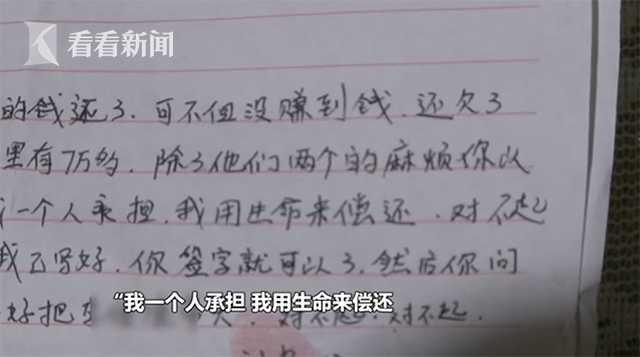 看看新闻
的钱还了.可不但没赚到钱.还欠了
里有7万多,除了他们两个的麻烦你以
一个人承担.我用生命来偿还.对不起
我已写好.你签字就可以了.然后你问
好把 对不起.对不起.
“我一个人承担 我用生命来偿还